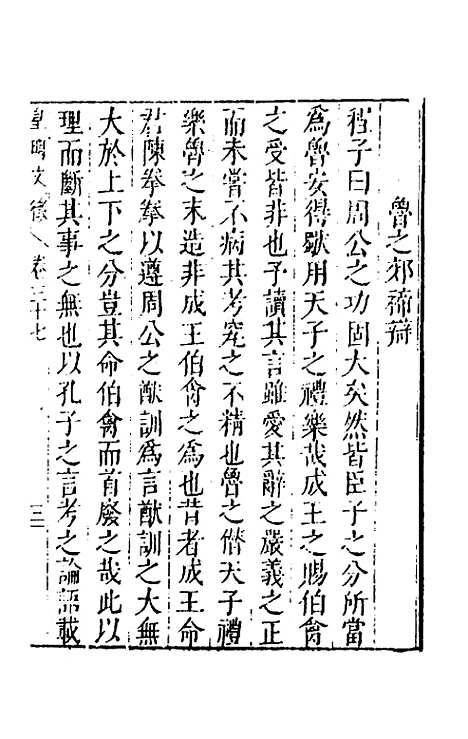 魯之郊禘辯
程子曰周公之功固大矣然皆臣子之分所當
為魯安得獨用天子之禮樂哉成王之賜伯禽
之受皆非也予讀其言雖愛其辭之嚴義之正
而未嘗不病其考究之不精也魯之僭天子禮
樂魯之末造非成王伯禽之為也昔者成王命
君陳拳拳以遵周公之猷訓為言猷訓之大無
大於上下之分豈其命伯禽而首廢之哉此以
理而斷其事之無也以孔子之言考之論語載
皇明文衡 卷三十七 三